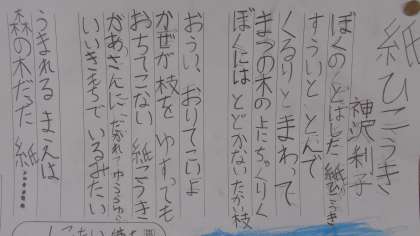 紙ひこうき
神沢利子
ぼくのとばした紙ひこうき
すういととんで
くるりとまわって
まつの木の上にちゃくりく
ぼくにはとどかないたかい枝
おうい、おりてこいよ
かぜが枝をゆすっても
おちてこない紙ひこうき
かあさんにだかれて
いいきもちでいるみたい
うまれるまえは
森の木だった紙